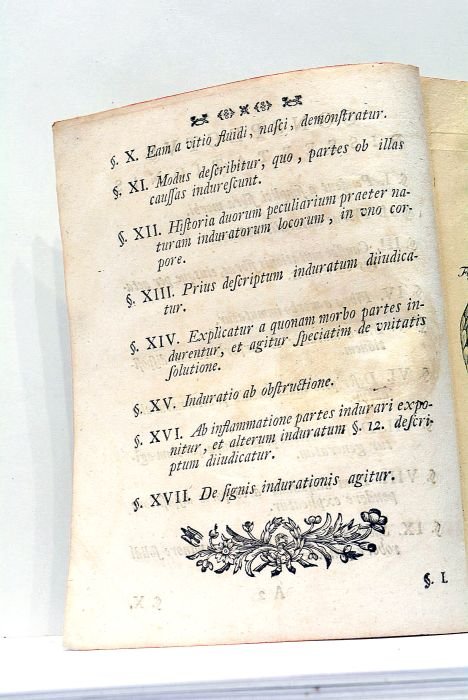 §. X. Eam a vitio fluidi, naſci, demonſtratur.
§. XI. Modus deſcribitur, quo, partes ob illas
cauſſas indureſcunt.
§. XII. Hiſtoria duorum peculiarium praeter na-
turam induratorum locorum, in vno cor-
pore.
§. XIII. Prius deſcriptum induratum diiudica-
tur.
§. XIV. Explicatur a quonam morbo partes in-
durentur, et agitur ſpeciatim de vnitatis
ſolutione.
§. XV. Induratio ab obſtructione.
§. XVI. Ab inflammatione partes indurari expo-
nitur, et alterum induratum §. 12. deſcri-
ptum diiudicatur.
§. XVII. De ſignis indurationis agitur.
§. I.